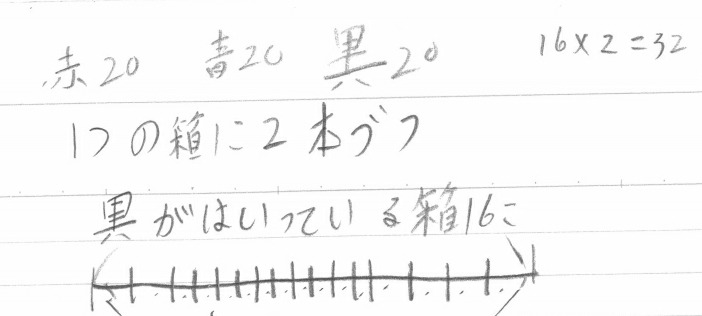 赤20 青20 黒20 16×2=32
1つの箱に2本づつ
黒がはいっている箱16こ